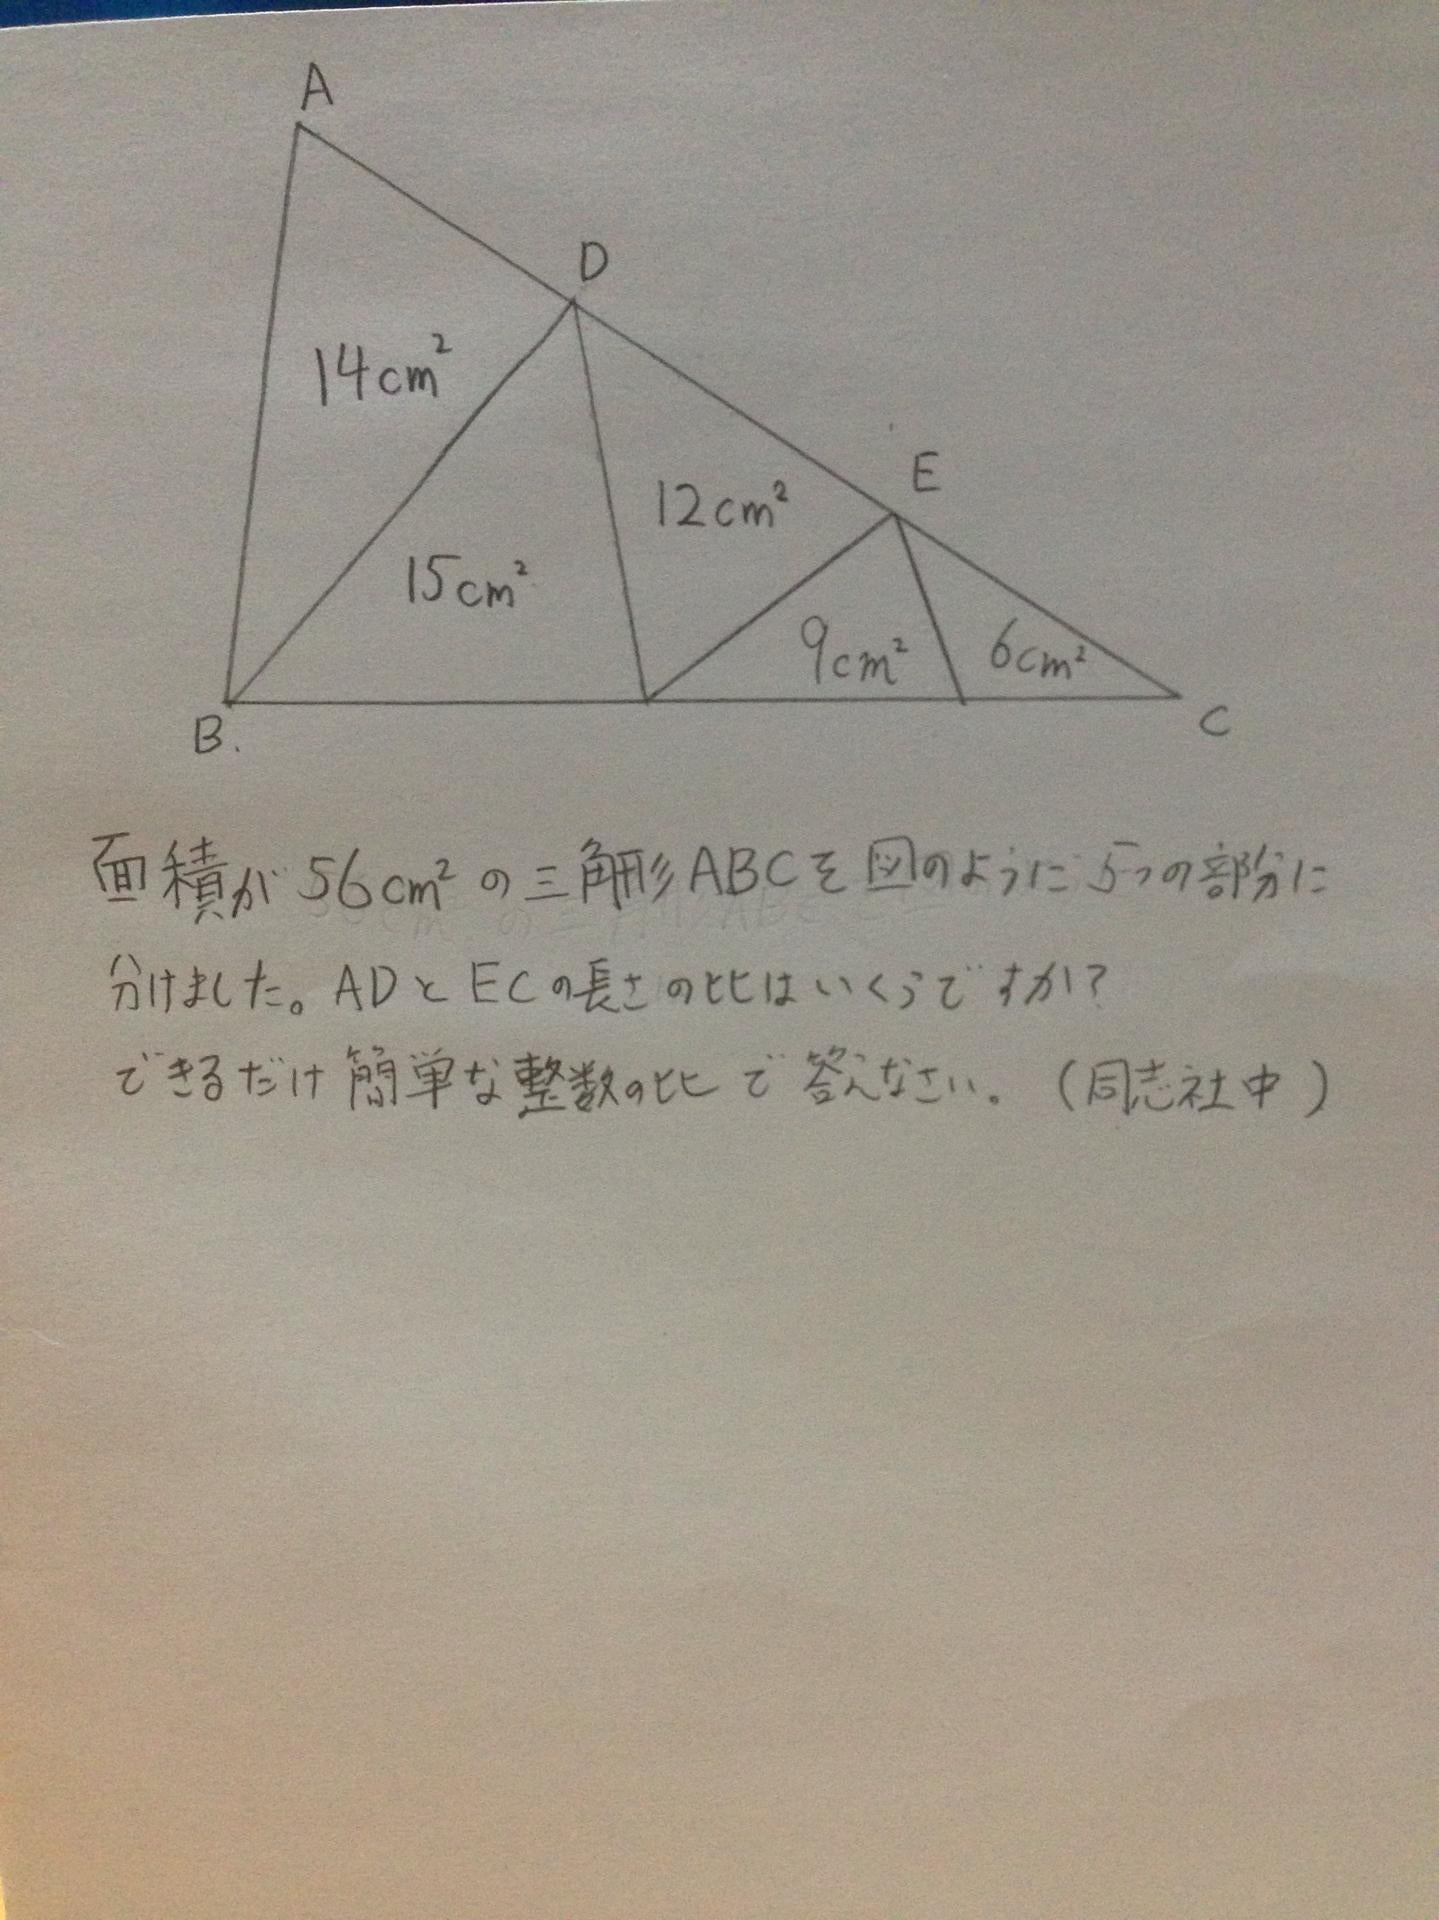 A
D
14cm²
E
12cm²
15cm²
9cm²
6cm²
B.
C
面積が56cm²の三角形ABCを図のように5つの部分に
分けました。ADとECの長さの比はいくらですか?
できるだけ簡単な整数の比で答えなさい。(同志社中)